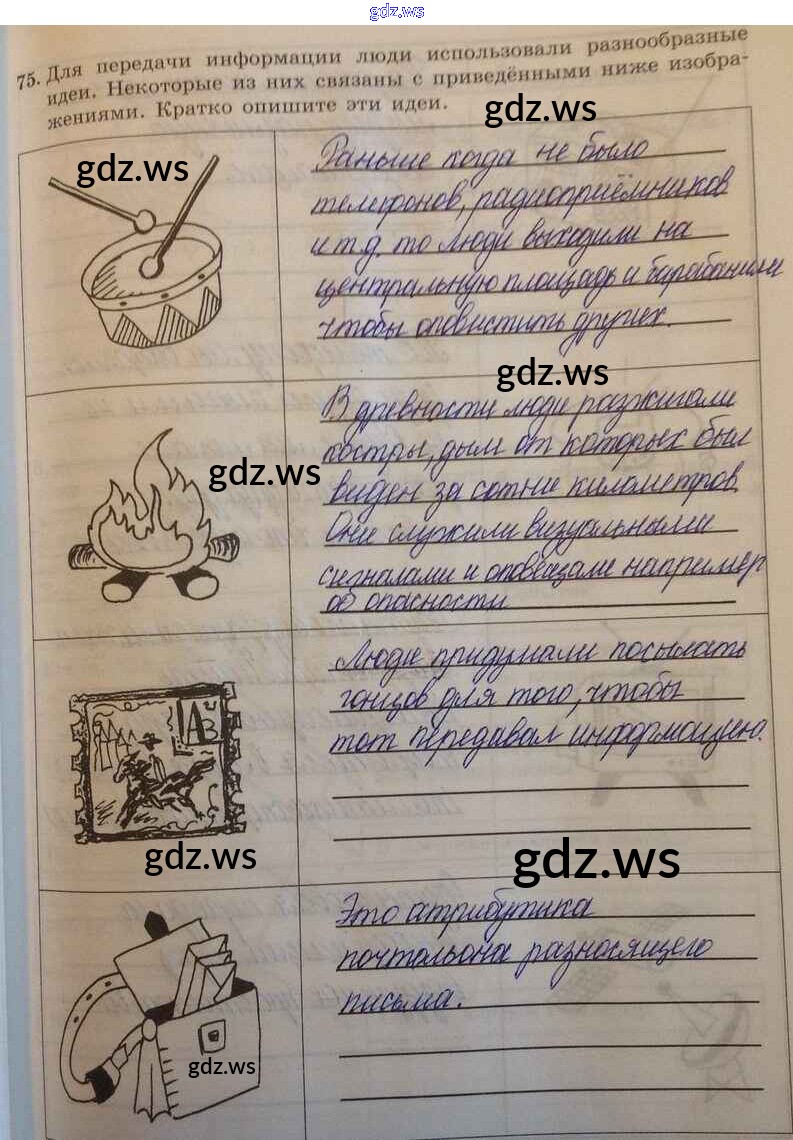 gdz.ws
75. Для передачи информации люди использовали разнообразные
идеи. Некоторые из них связаны с приведёнными ниже изобра-
жениями. Кратко опишите эти идеи.
gdz.ws
gdz.ws
Раньше когда не было
телефонов, радиоприёмников
и т.д. то люди выходили на
центральную площадь и барабанили
чтобы оповистить других.
gdz.ws
gdz.ws
В древности люди разжигали
костры, дым от которых был
виден за сотни километров
Они служили визуальными
сигналами и оповещали например
об опасности
Люди придумали посылать
гонцов для того, чтобы
тот передавал информацию.
gdz.ws
gdz.ws
Это атрибутика
почтальона разносящего
письма.
gdz.ws